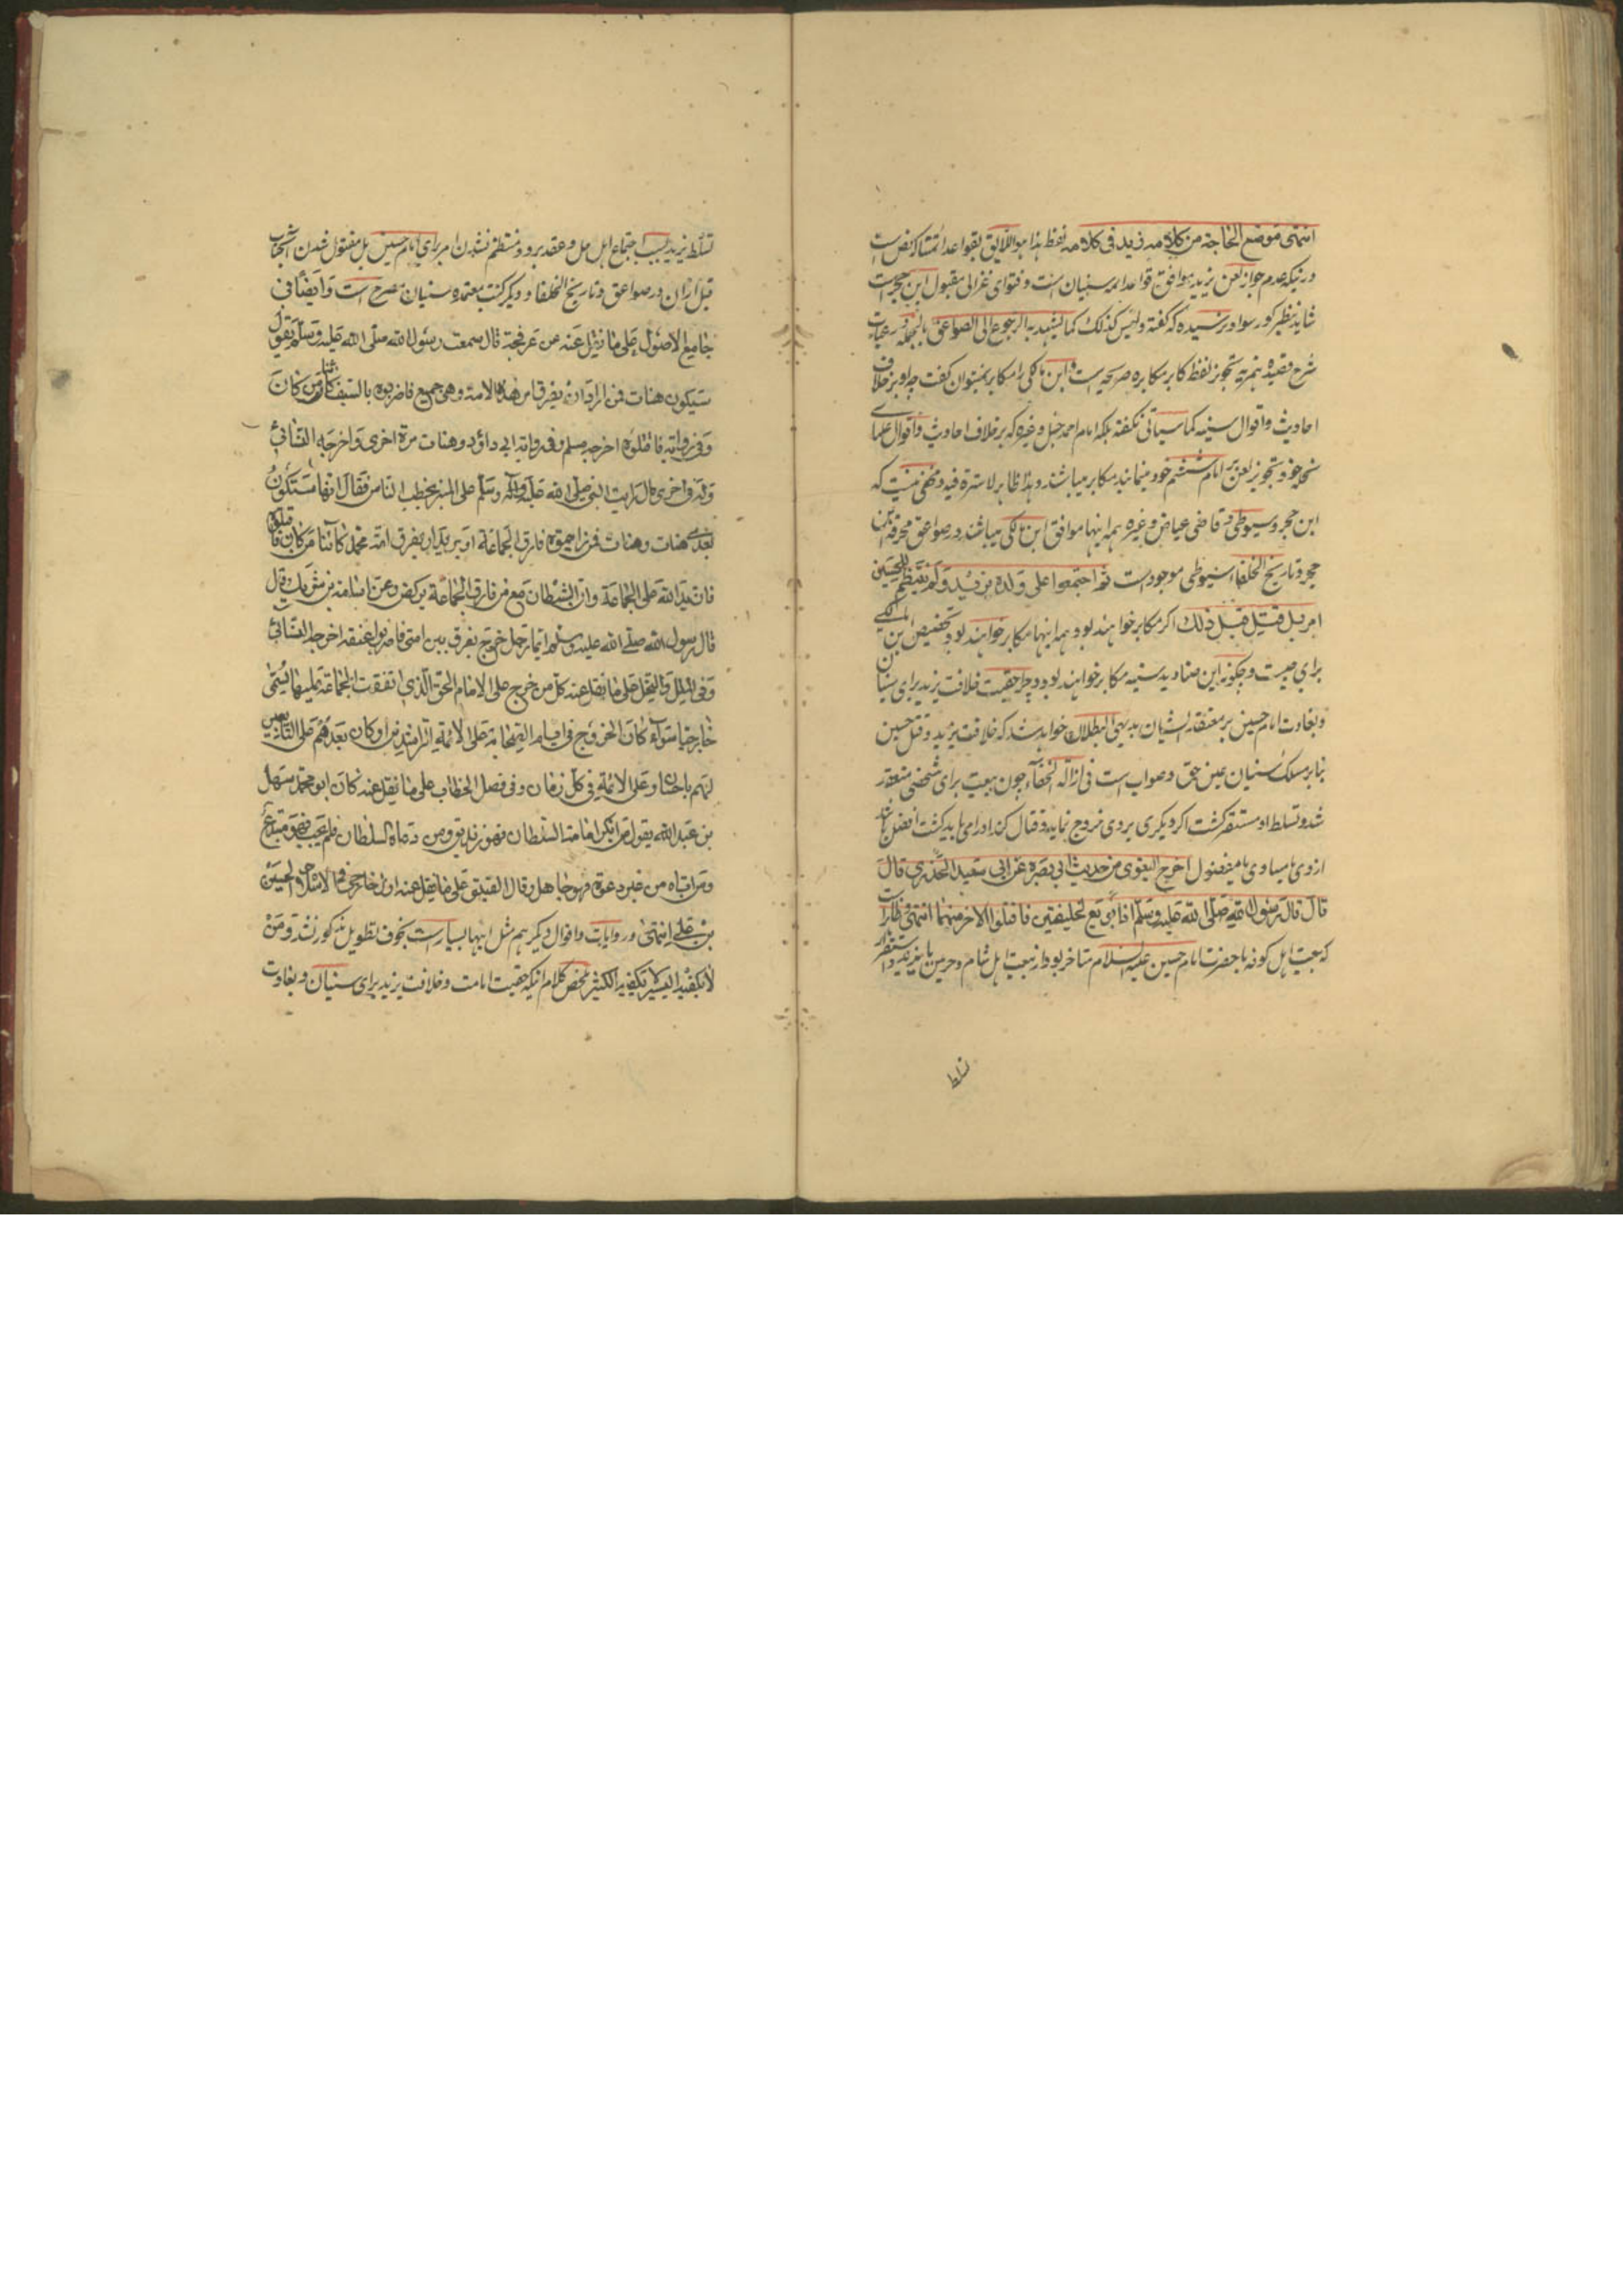 انتهی موضع الحاجة من کلامه زید فی کلامه لفظ هذا هو اللایق بقواعد ائمتنا که نص است
در نیکه عدم جواز لعن یزید موافق قواعد ائمه سنیان است و فتوای غزالی مقبول ابن حجر است
شاید بنظر کور سواد نرسیده که گفته و لیس کذلک کما یشهد به الرجوع الی الصواعق بالجمله در عبارت
شرح قصیده همزیه تجویز لفظ کابر مکابره صریحه است و ابن مالکی را مکابر نمیتوان گفت چه او بر خلاف
احادیث و اقوال سنیه کما سیاتی نگفته بلکه امام احمد حنبل و غیره که بر خلاف احادیث و اقوال علمای
نحله خود تجویز لعن بر امام ششم خود مینمایند مکابر میباشند و هذا ظاهر لا سترة فیه و مخفی نیست که
ابن حجر و سیوطی و قاضی عیاض و غیره همه اینها موافق ابن مالکی میباشند در صواعق محرقه ابن
حجر و تاریخ الخلفاء سیوطی موجود است ثم اجتمعوا علی ولده یزید و لم ینتظم للحسین
امر بل قتل قبل ذلک اگر مکابر خواهند بود همه اینها مکابر خواهند بود تخصیص ابن المالکی
برای چیست و چگونه این صنادید سنیه مکابر خواهند بود و چرا حقیت خلافت یزید برای سنیان
و بغاوت امام حسین بر معتقد ایشان بدیهی البطلان خواهد شد که خلافت یزید و قتل حسین
بنابر مسلک سنیان عین حق و صواب است فی ازالة الخفاء چون بیعت برای شخصی منعقد
شد و تسلط او مستقر گشت اگر دیگری بر وی خروج نماید و قتال کند او را می باید کشت افضل باشد
از وی یا مساوی یا مفضول اخرج البغوی من حدیث ابی نضرة عن ابی سعید الخدری قال
قال قال رسول الله صلی الله علیه وسلم اذا بویع لخلیفتین فاقتلوا الاخر منهما انتهی و ظاهر است
که بیعت اهل کوفه با حضرت امام حسین علیه السلام متاخر بود از بیعت اهل شام و حرمین با یزید و استقرار
تسلط
تسلط یزید بسبب اجتماع اهل حل و عقد برو و منتظم نشدن امر برای امام حسین بل مقتول شدن آنجناب
قبل ازان در صواعق و تاریخ الخلفا و دیگر کتب معتمده سنیان مصرح است و ایضا فی
جامع الاصول علی ما نقل عنه عن عرفجة قال سمعت رسول الله صلی الله علیه وسلم یقول
ستکون هنات فمن اراد ان یفرق امر هذه الامة و هی جمیع فاضربوه بالسیف کائنا من کان
و فی روایة فاقتلوه اخرجه مسلم و فی روایة ابی داؤد و هنات مرة اخری و اخرجه النسائی
و له فی اخری قال رایت النبی صلی الله علیه وآله وسلم علی المنبر یخطب الناس فقال انها ستکون
بعدی هنات و هنات فمن رایتموه فارق الجماعة او یرید ان یفرق امة محمد کائنا من کان فاقتلوه
فان ید الله علی الجماعة و ان الشیطان مع من فارق الجماعة یرکض و عن اسامة بن شریک قال
قال رسول الله صلی الله علیه وسلم ایما رجل خرج یفرق بین امتی فاضربوا عنقه اخرجه النسائی
و فی الملل و النحل علی ما نقل عنه کل من خرج علی الامام الحق الذی اتفقت الجماعة علیه یسمی
خارجیا سواء کان الخروج فی ایام الصحابة علی الائمة الراشدین او کان بعدهم علی التابعین
لهم باحسان و علی الائمة فی کل زمان و فی فصل الخطاب علی ما نقل عنه کان ابو محمد سهل
بن عبد الله یقول من انکر امامة السلطان فهو زندیق و من دعاه السلطان فلم یجب فهو مبتدع
و من اتاه من غیر دعوة فهو جاهل و قال علی ما نقل عنه اول خارجی فی الاسلام الحسین
بن علی انتهی و روایات و اقوال دیگر هم مثل اینها بسیار است بخوف تطویل مذکور نشد و من
لا یکفیه الیسیر لا یکفیه الکثیر ملخص کلام اینکه حقیت امامت و خلافت یزید برای سنیان و بغاوت